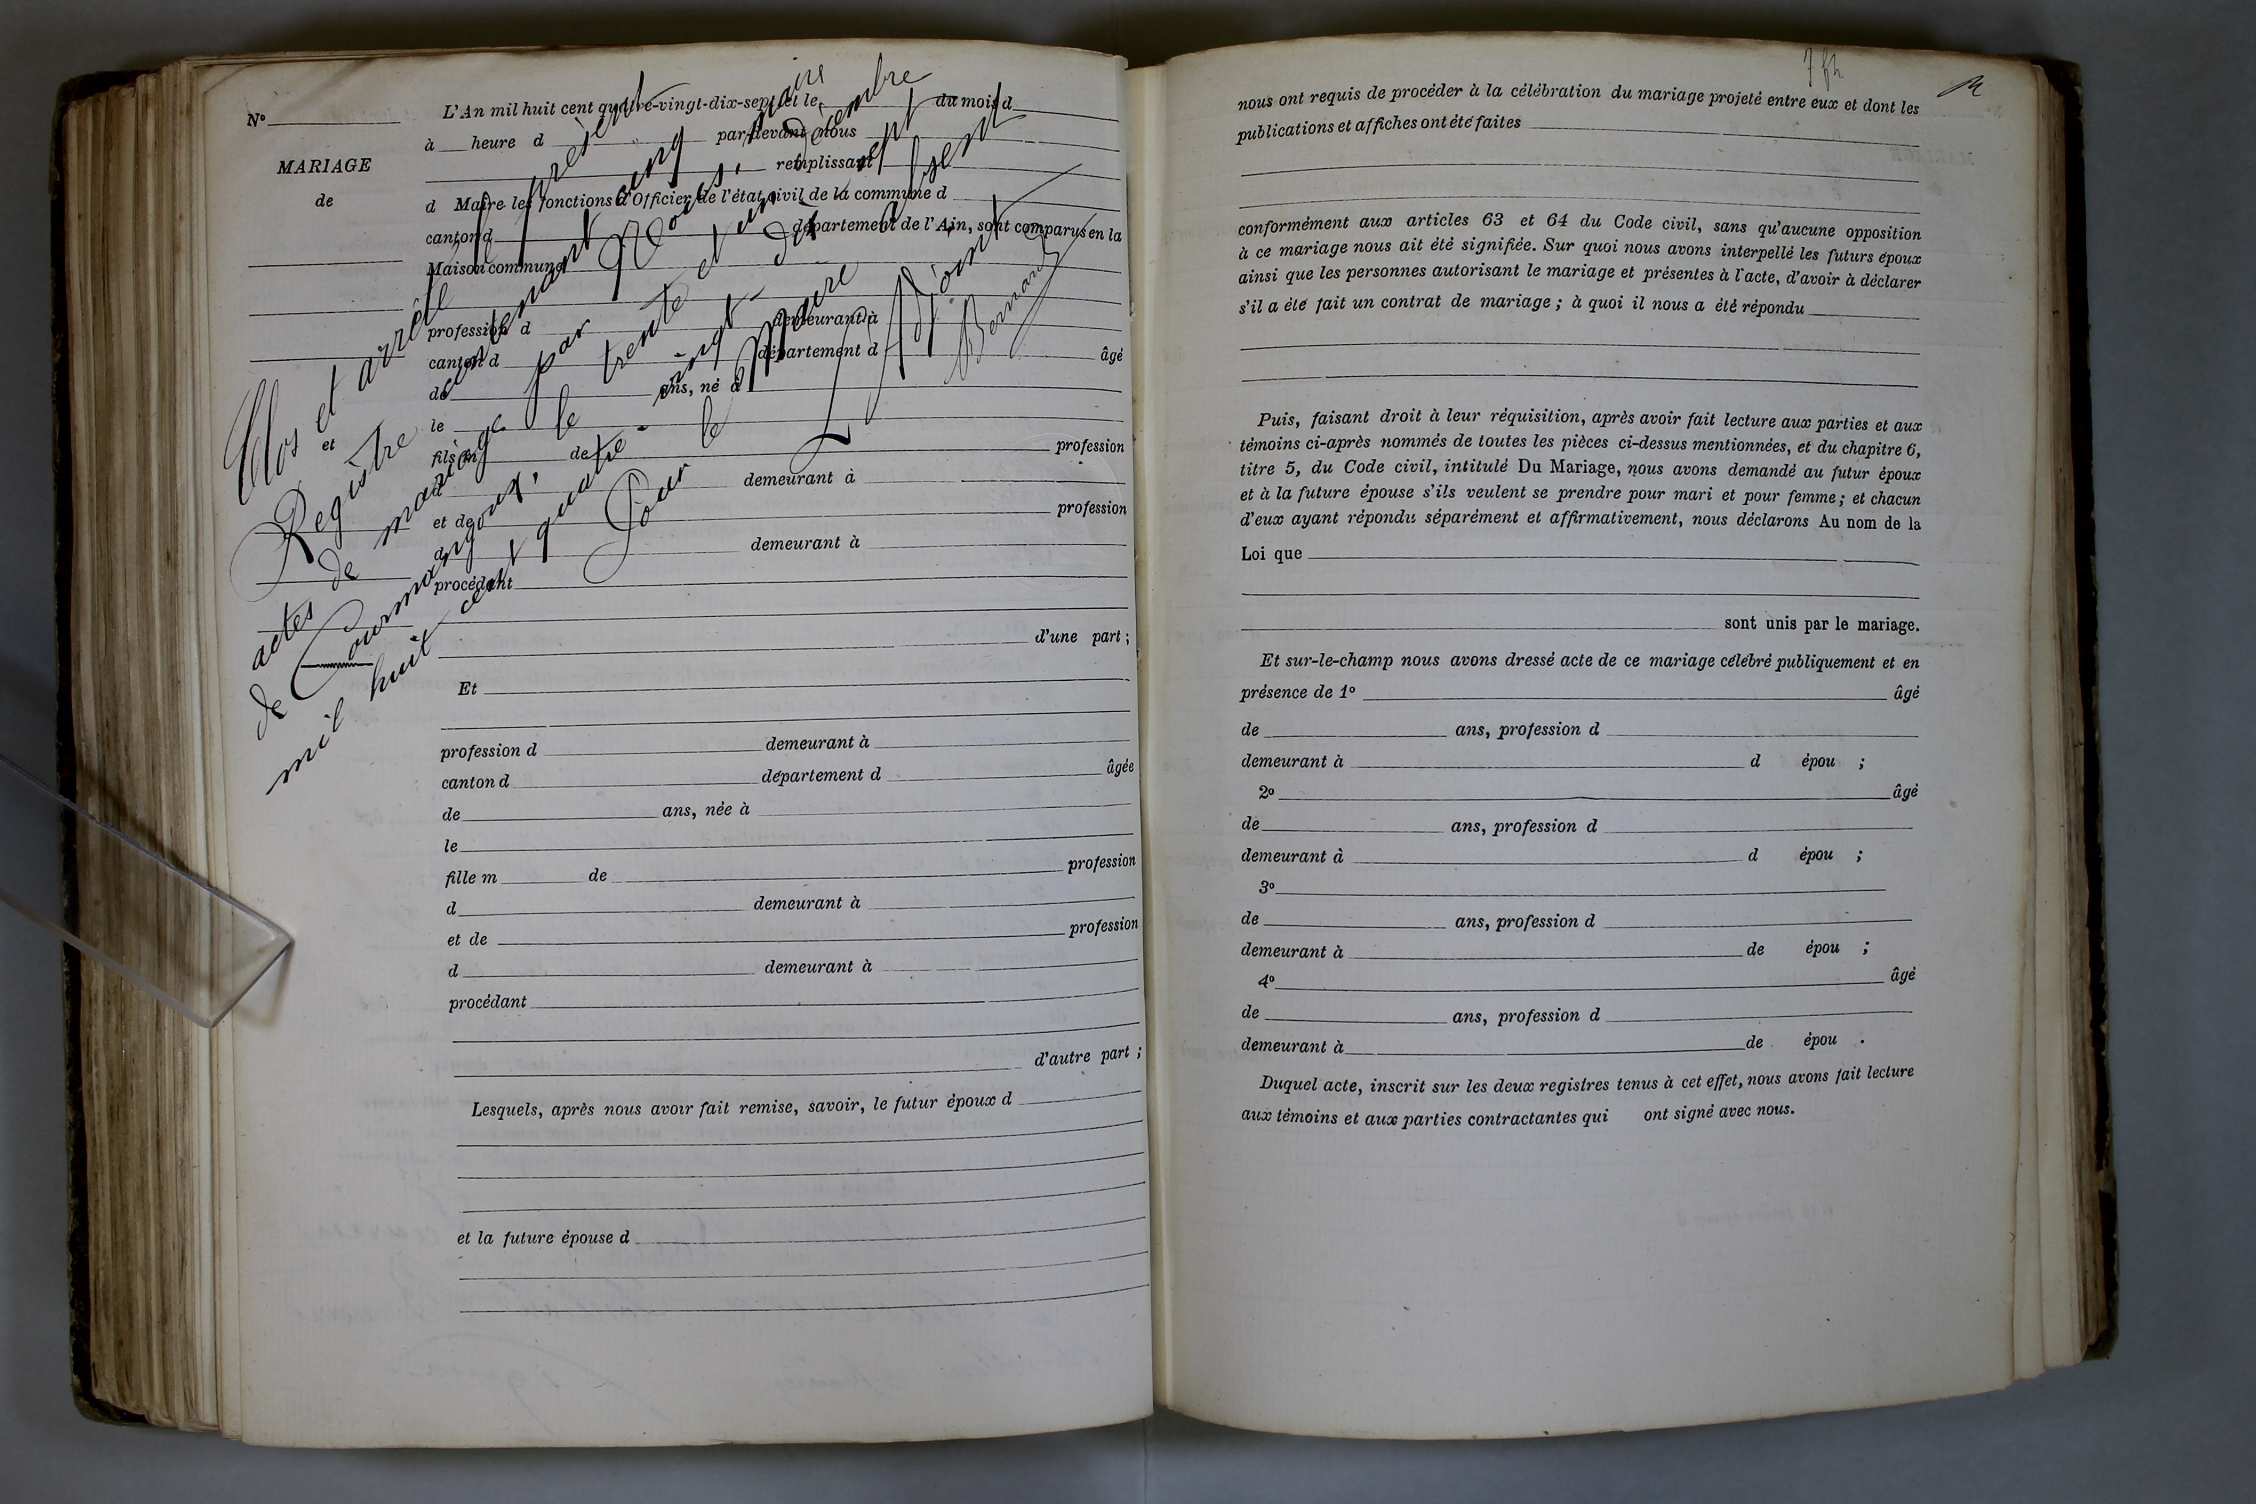 N°
MARIAGE
de
et
L'An mil huit cent quatre-vingt-dix-sept et le du mois d
à heure d par-devant nous
remplissant
d Maire les fonctions d'Officier de l'état civil de la commune d
canton d département de l'Ain, sont comparus en la
Maison commune
profession d demeurant à
canton d département d âgé
de ans, né à
le
fils m de profession
d demeurant à
et de profession
d demeurant à
procédant
d'une part ;
Et
profession d demeurant à
canton d département d âgée
de ans, née à
le
fille m de profession
d demeurant à
et de profession
d demeurant à
procédant
d'autre part ;
Lesquels, après nous avoir fait remise, savoir, le futur époux d
et la future épouse d
Clos et arrêté le présent
Registre contenant cinq
actes de mariage par Nous, Maire
de Courmangoux, le trente et un décembre
mil huit cent quatre-vingt-dix sept
Pour le Maire absent
L'Adjoint
Bernard
nous ont requis de procéder à la célébration du mariage projeté entre eux et dont les
publications et affiches ont été faites
conformément aux articles 63 et 64 du Code civil, sans qu'aucune opposition
à ce mariage nous ait été signifiée. Sur quoi nous avons interpellé les futurs époux
ainsi que les personnes autorisant le mariage et présentes à l'acte, d'avoir à déclarer
s'il a été fait un contrat de mariage ; à quoi il nous a été répondu
Puis, faisant droit à leur réquisition, après avoir fait lecture aux parties et aux
témoins ci-après nommés de toutes les pièces ci-dessus mentionnées, et du chapitre 6,
titre 5, du Code civil, intitulé Du Mariage, nous avons demandé au futur époux
et à la future épouse s'ils veulent se prendre pour mari et pour femme ; et chacun
d'eux ayant répondu séparément et affirmativement, nous déclarons Au nom de la
Loi que
sont unis par le mariage.
Et sur-le-champ nous avons dressé acte de ce mariage célébré publiquement et en
présence de 1° âgé
de ans, profession d
demeurant à d épou ;
2° âgé
de ans, profession d
demeurant à d épou ;
3°
de ans, profession d
demeurant à de épou ;
4° âgé
de ans, profession d
demeurant à de épou .
Duquel acte, inscrit sur les deux registres tenus à cet effet, nous avons fait lecture
aux témoins et aux parties contractantes qui ont signé avec nous.